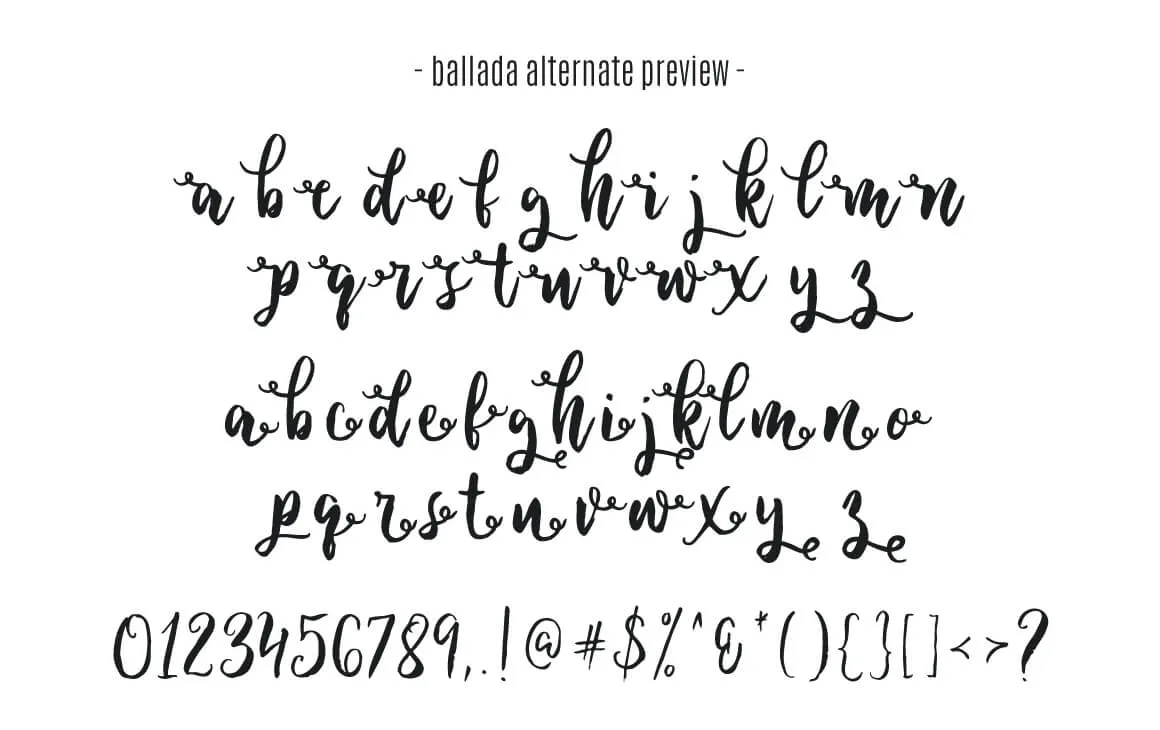 - ballada alternate preview -
a b c d e f g h i j k l m n
p q r s t u v w x y z
a b c d e f g h i j k l m n o
p q r s t u v w x y z
0123456789,.!@#$%^&*(){}[]<>?